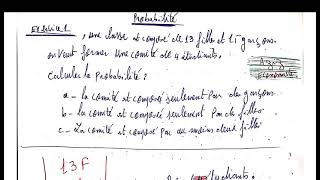 Probabilité
Exercice 1, une classe est composé de 13 filles et 15 garçons
on veut former une comité de 4 étudiants.
Calculer la probabilité :
a - la comité est composé seulement par des garçons
b - la comité est composé seulement par des filles
c - La comité est composé par au moins deux filles
13F